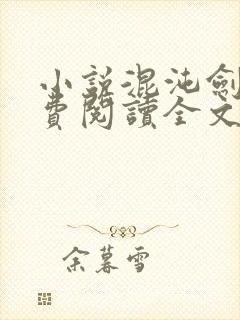 小說混沌劍
費閱讀全文
余暮雪